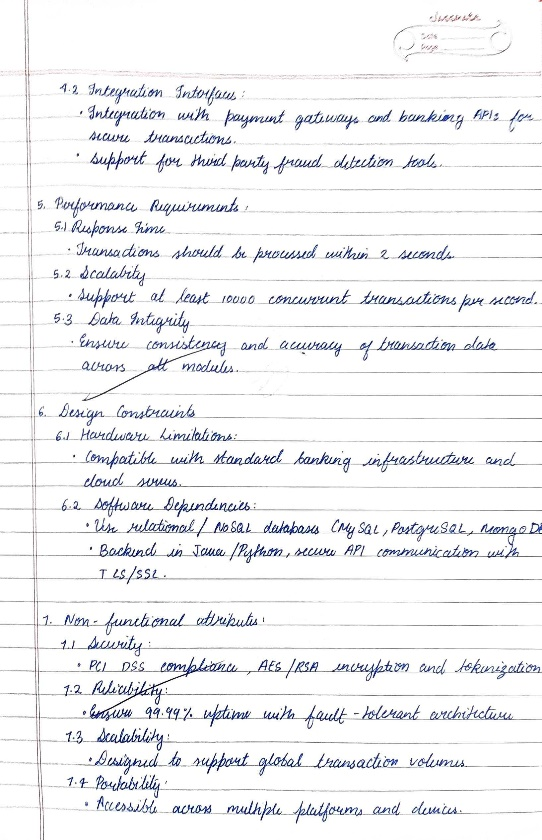 classmate
Date
Page
4.2 Integration Interfaces:
• Integration with payment gateways and banking APIs for
secure transactions.
• Support for third party fraud detection tools.
5. Performance Requirements:
5.1 Response Time
• Transactions should be processed within 2 seconds.
5.2 Scalabity
• Support at least 10000 concurrent transactions per second.
5.3 Data Integrity
• Ensure consistency and accuracy of transaction data
across all modules.
6. Design Constraints
6.1 Hardware Limitations:
• Compatible with standard banking infrastructure and
cloud
6.2 Software Dependencies:
• Use relational / NoSQL databases (MySQL, PostgreSQL, MongoDB
• Backend in Java /Python, secure API communication with
TLS/SSL.
7. Non-functional attributes:
7.1 Security:
• PCI DSS compliance, AES /RSA encryption and tokenization
7.2 Reliability:
• Ensure 99.99% uptime with fault-tolerant architecture
7.3 Scalability:
• Designed to support global transaction volumes.
7.4 Portability:
• Accessible across multiple platforms and devices.